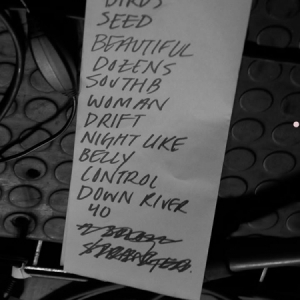 BIRDS
SEED
BEAUTIFUL
DOZENS
SOUTHB
WOMAN
DRIFT
NIGHT LIKE
BELLY
CONTROL
DOWN RIVER
40